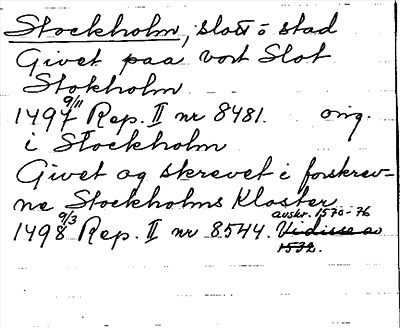 Stockholm, slott o stad
Givet paa vort Slot
Stokholm
1497 9/11 Rep. II nr 8481. orig.
i Stockholm
Givet og skrevet i forskrev-
ne Stockholms Kloster
1498 9/3 Rep. II nr 8544. avskr. 1570-76
Vidisse av
1532.